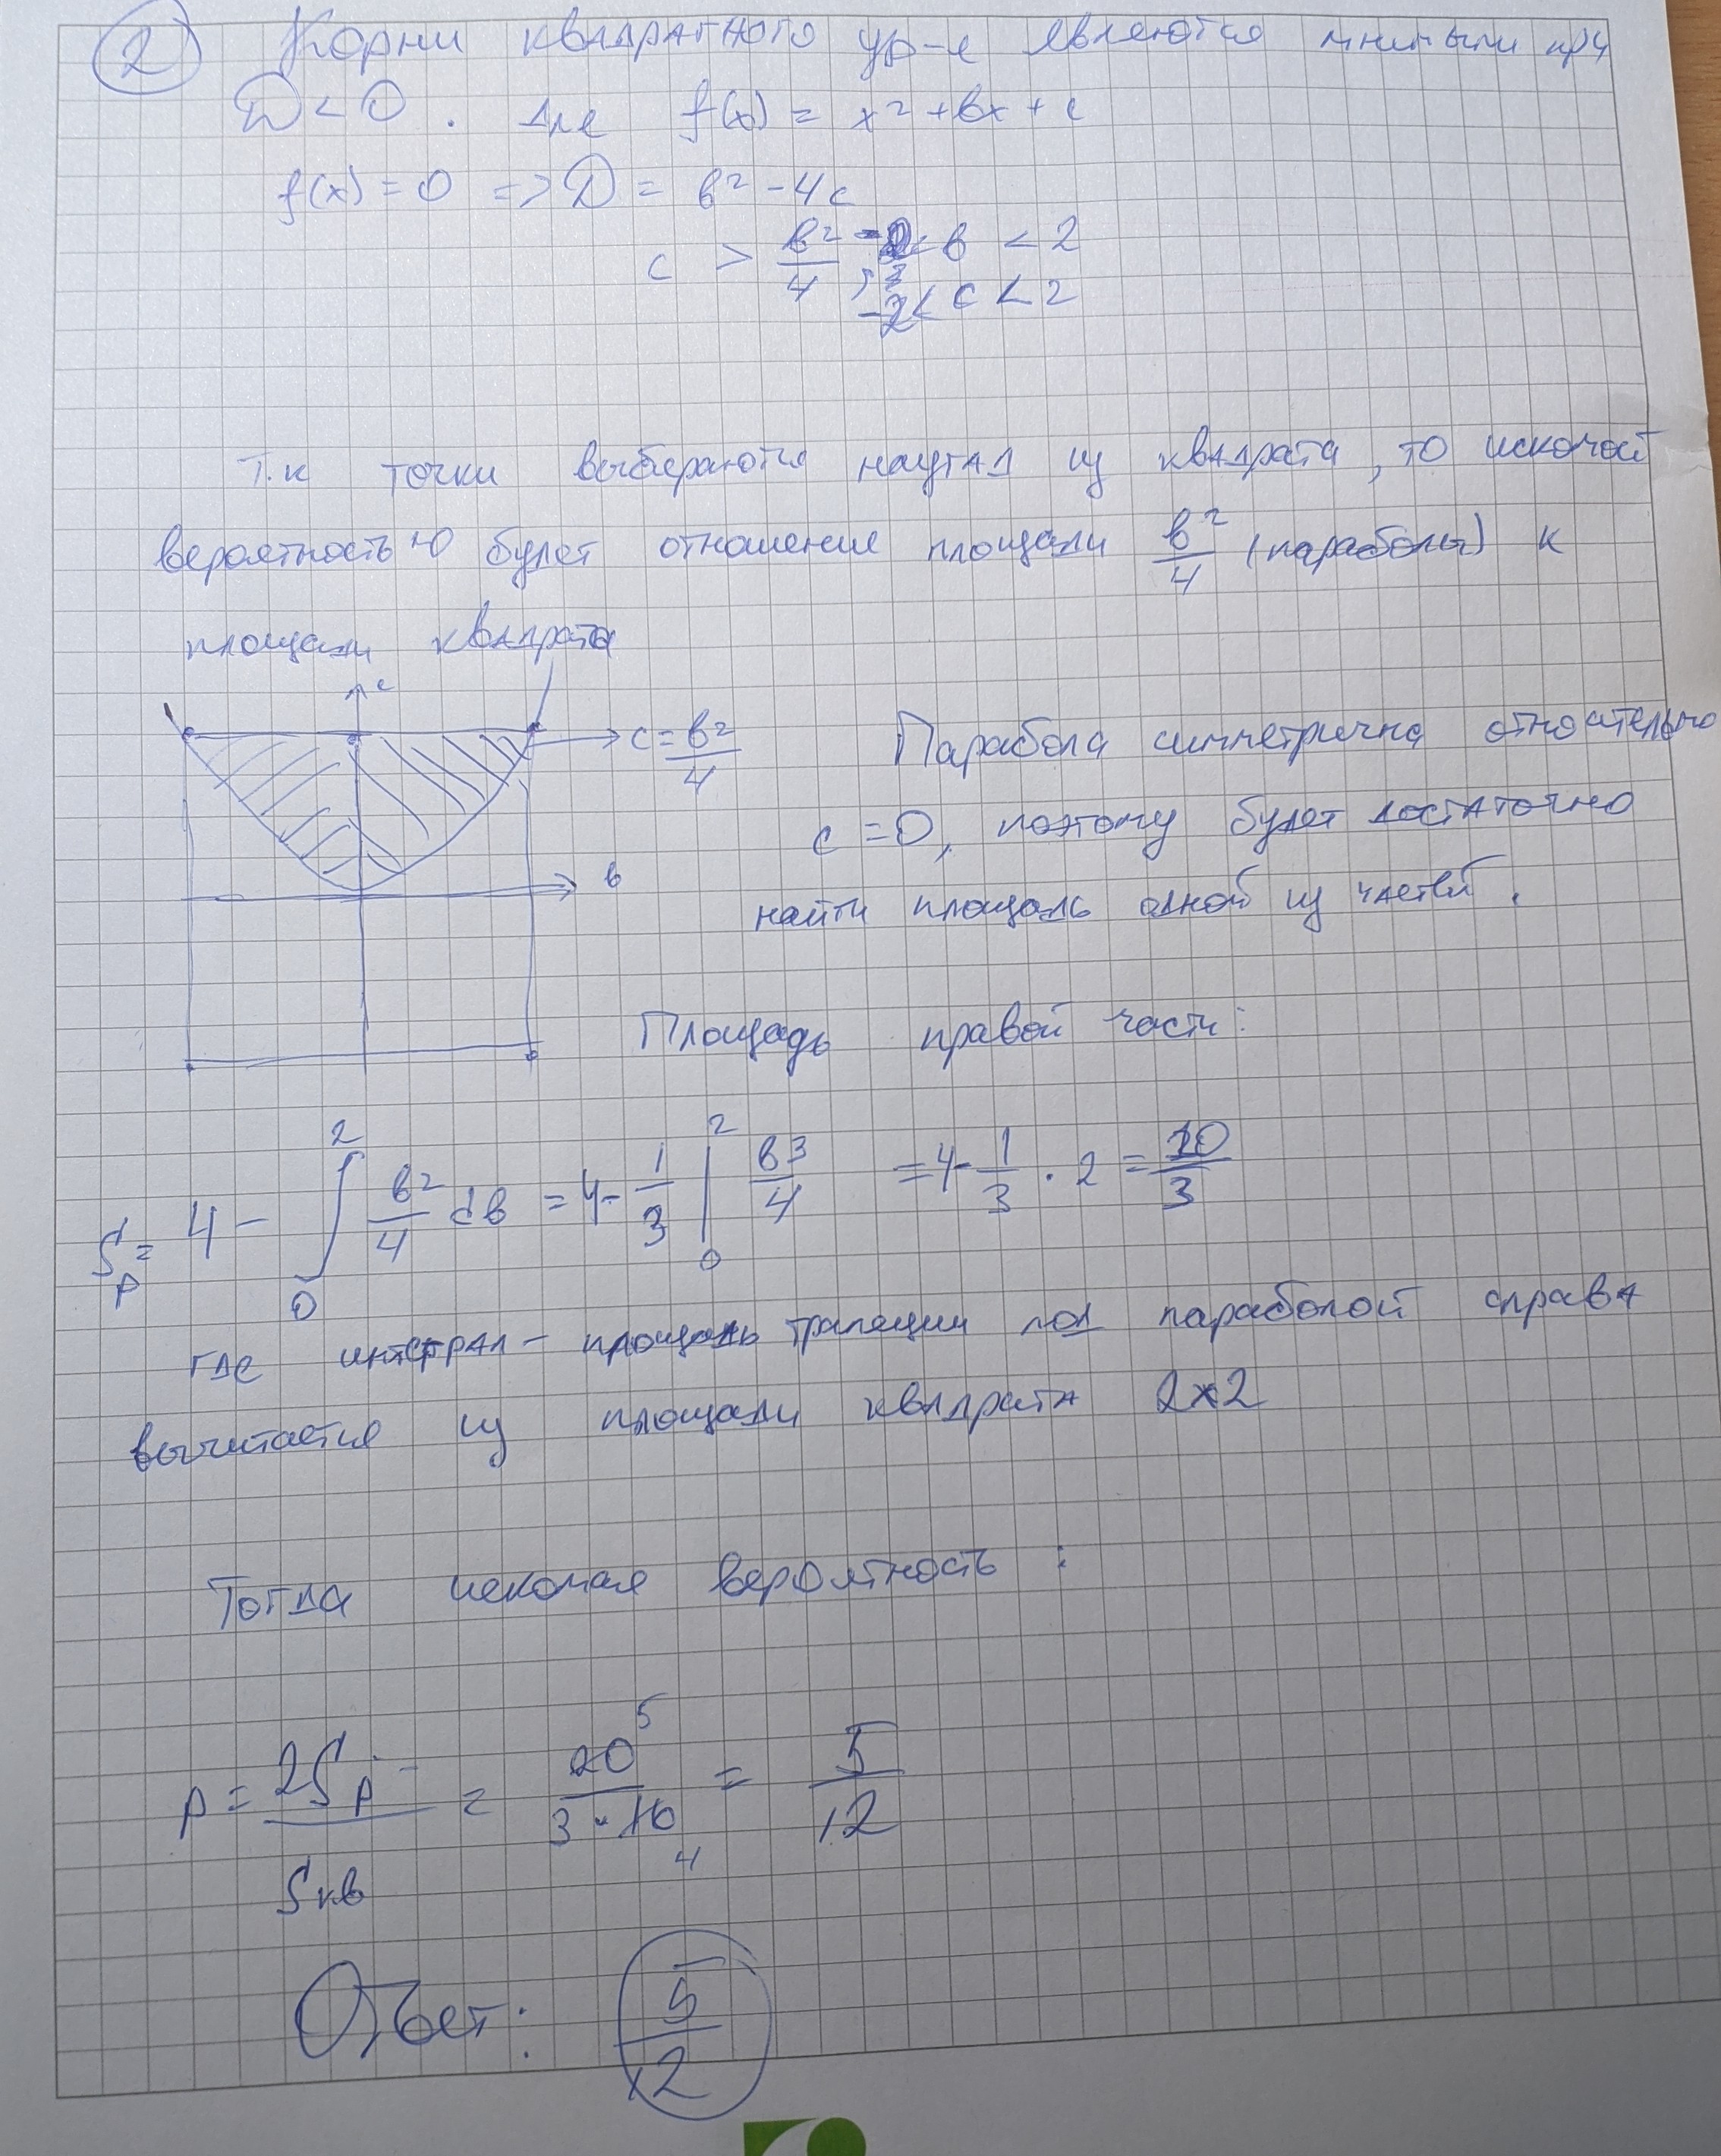 2 Корни квадратного ур-я являются мнимыми при
D < 0 . Для f(x) = x² + bx + c
f(x) = 0 => D = b² - 4c
c > b²/4 , -2 < b < 2
-2 < c < 2
Т.к точки выбираются наугад из квадрата, то искомой
вероятностью будет отношение площади b²/4 (параболы) к
площади квадрата
c
c = b²/4
b
Парабола симметрична относительно
c = 0, поэтому будет достаточно
найти площадь одной из частей.
Площадь правой части:
Sp = 4 - ∫₀² b²/4 db = 4 - 1/3 |₀² b³/4 = 4 - 1/3 · 2 = 10/3
где интеграл - площадь трапеции под параболой справа
вычитается из площади квадрата 2x2
Тогда искомая вероятность :
p = 2Sp/Sкв = 20 5/3·16 4 = 5/12
Ответ: 5/12